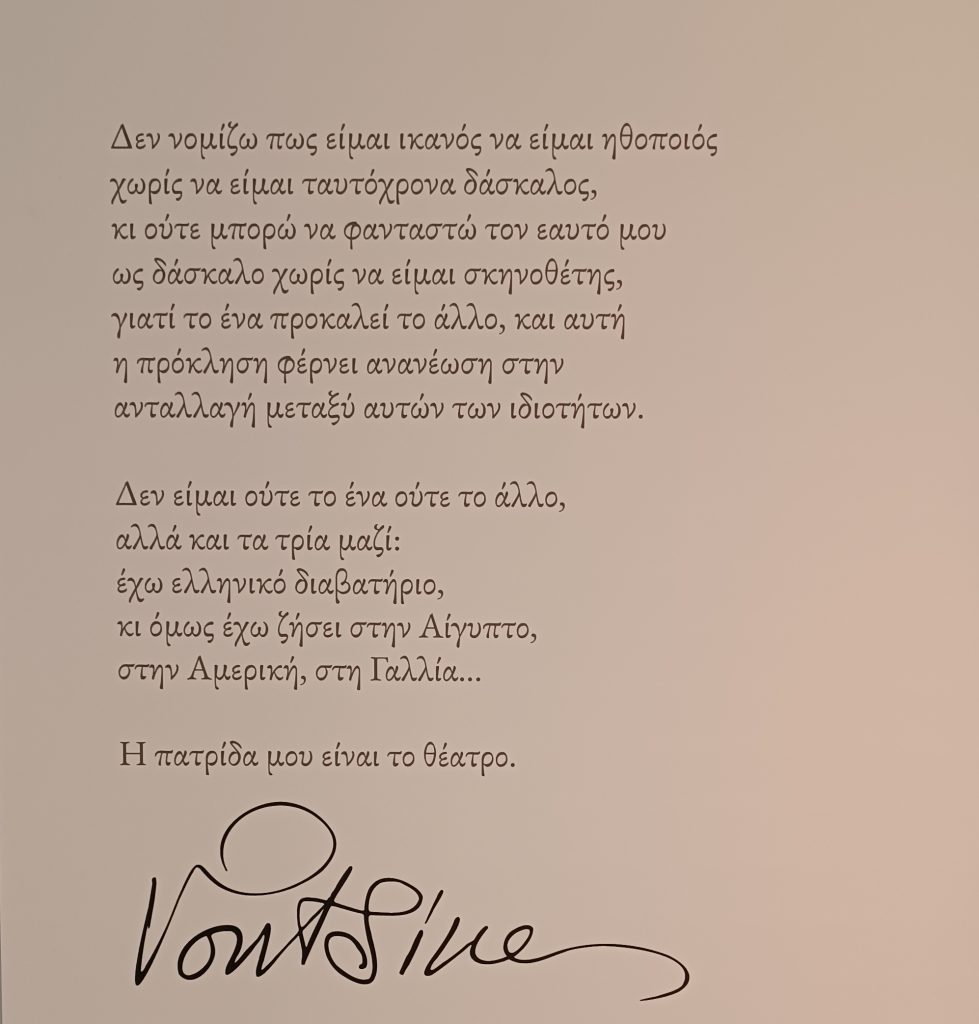 Δεν νομίζω πως είμαι ικανός να είμαι ηθοποιός
χωρίς να είμαι ταυτόχρονα δάσκαλος,
κι ούτε μπορώ να φανταστώ τον εαυτό μου
ως δάσκαλο χωρίς να είμαι σκηνοθέτης,
γιατί το ένα προκαλεί το άλλο, και αυτή
η πρόκληση φέρνει ανανέωση στην
ανταλλαγή μεταξύ αυτών των ιδιοτήτων.
Δεν είμαι ούτε το ένα ούτε το άλλο,
αλλά και τα τρία μαζί:
έχω ελληνικό διαβατήριο,
κι όμως έχω ζήσει στην Αίγυπτο,
στην Αμερική, στη Γαλλία...
Η πατρίδα μου είναι το θέατρο.